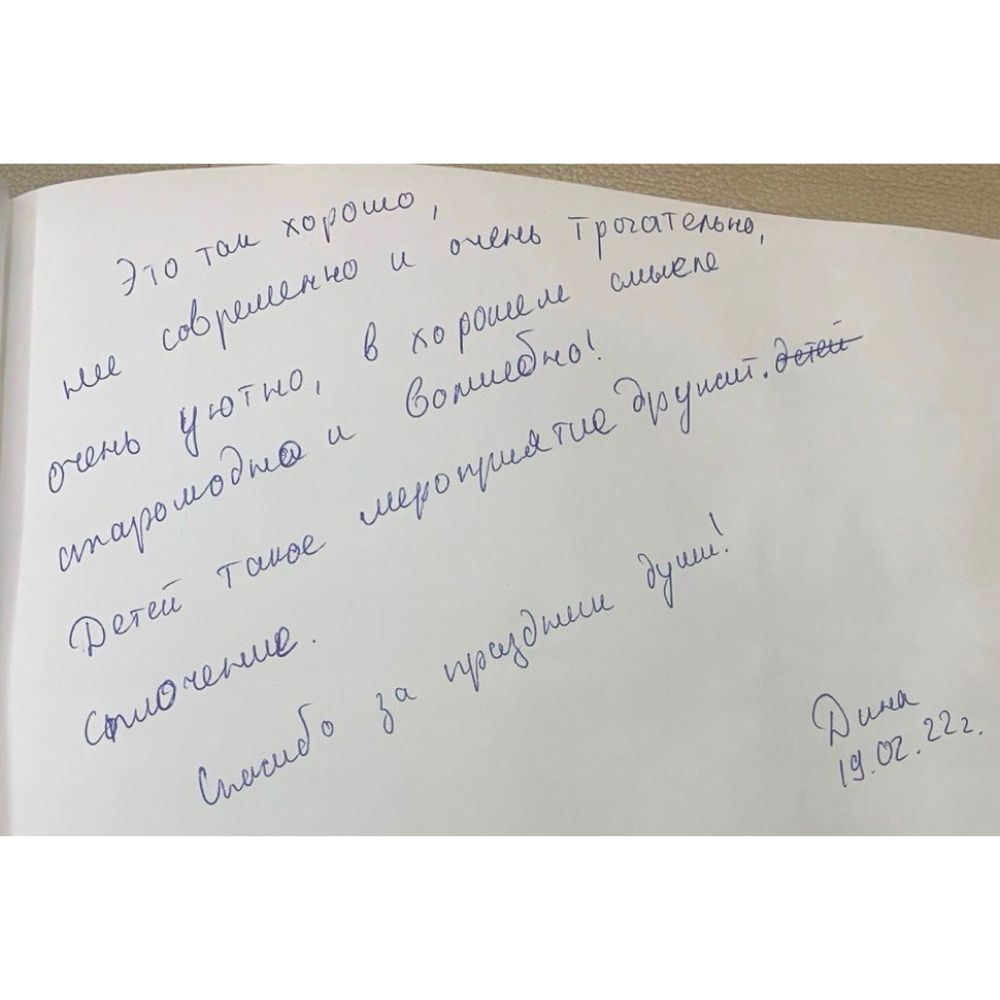 Это так хорошо,
не современно и очень трогательно,
очень уютно, в хорошем смысле
старомодно и волшебно!
Детей такое мероприятие дружит. детей
сплочение.
Спасибо за праздник души!
Дина
19.02.22г.